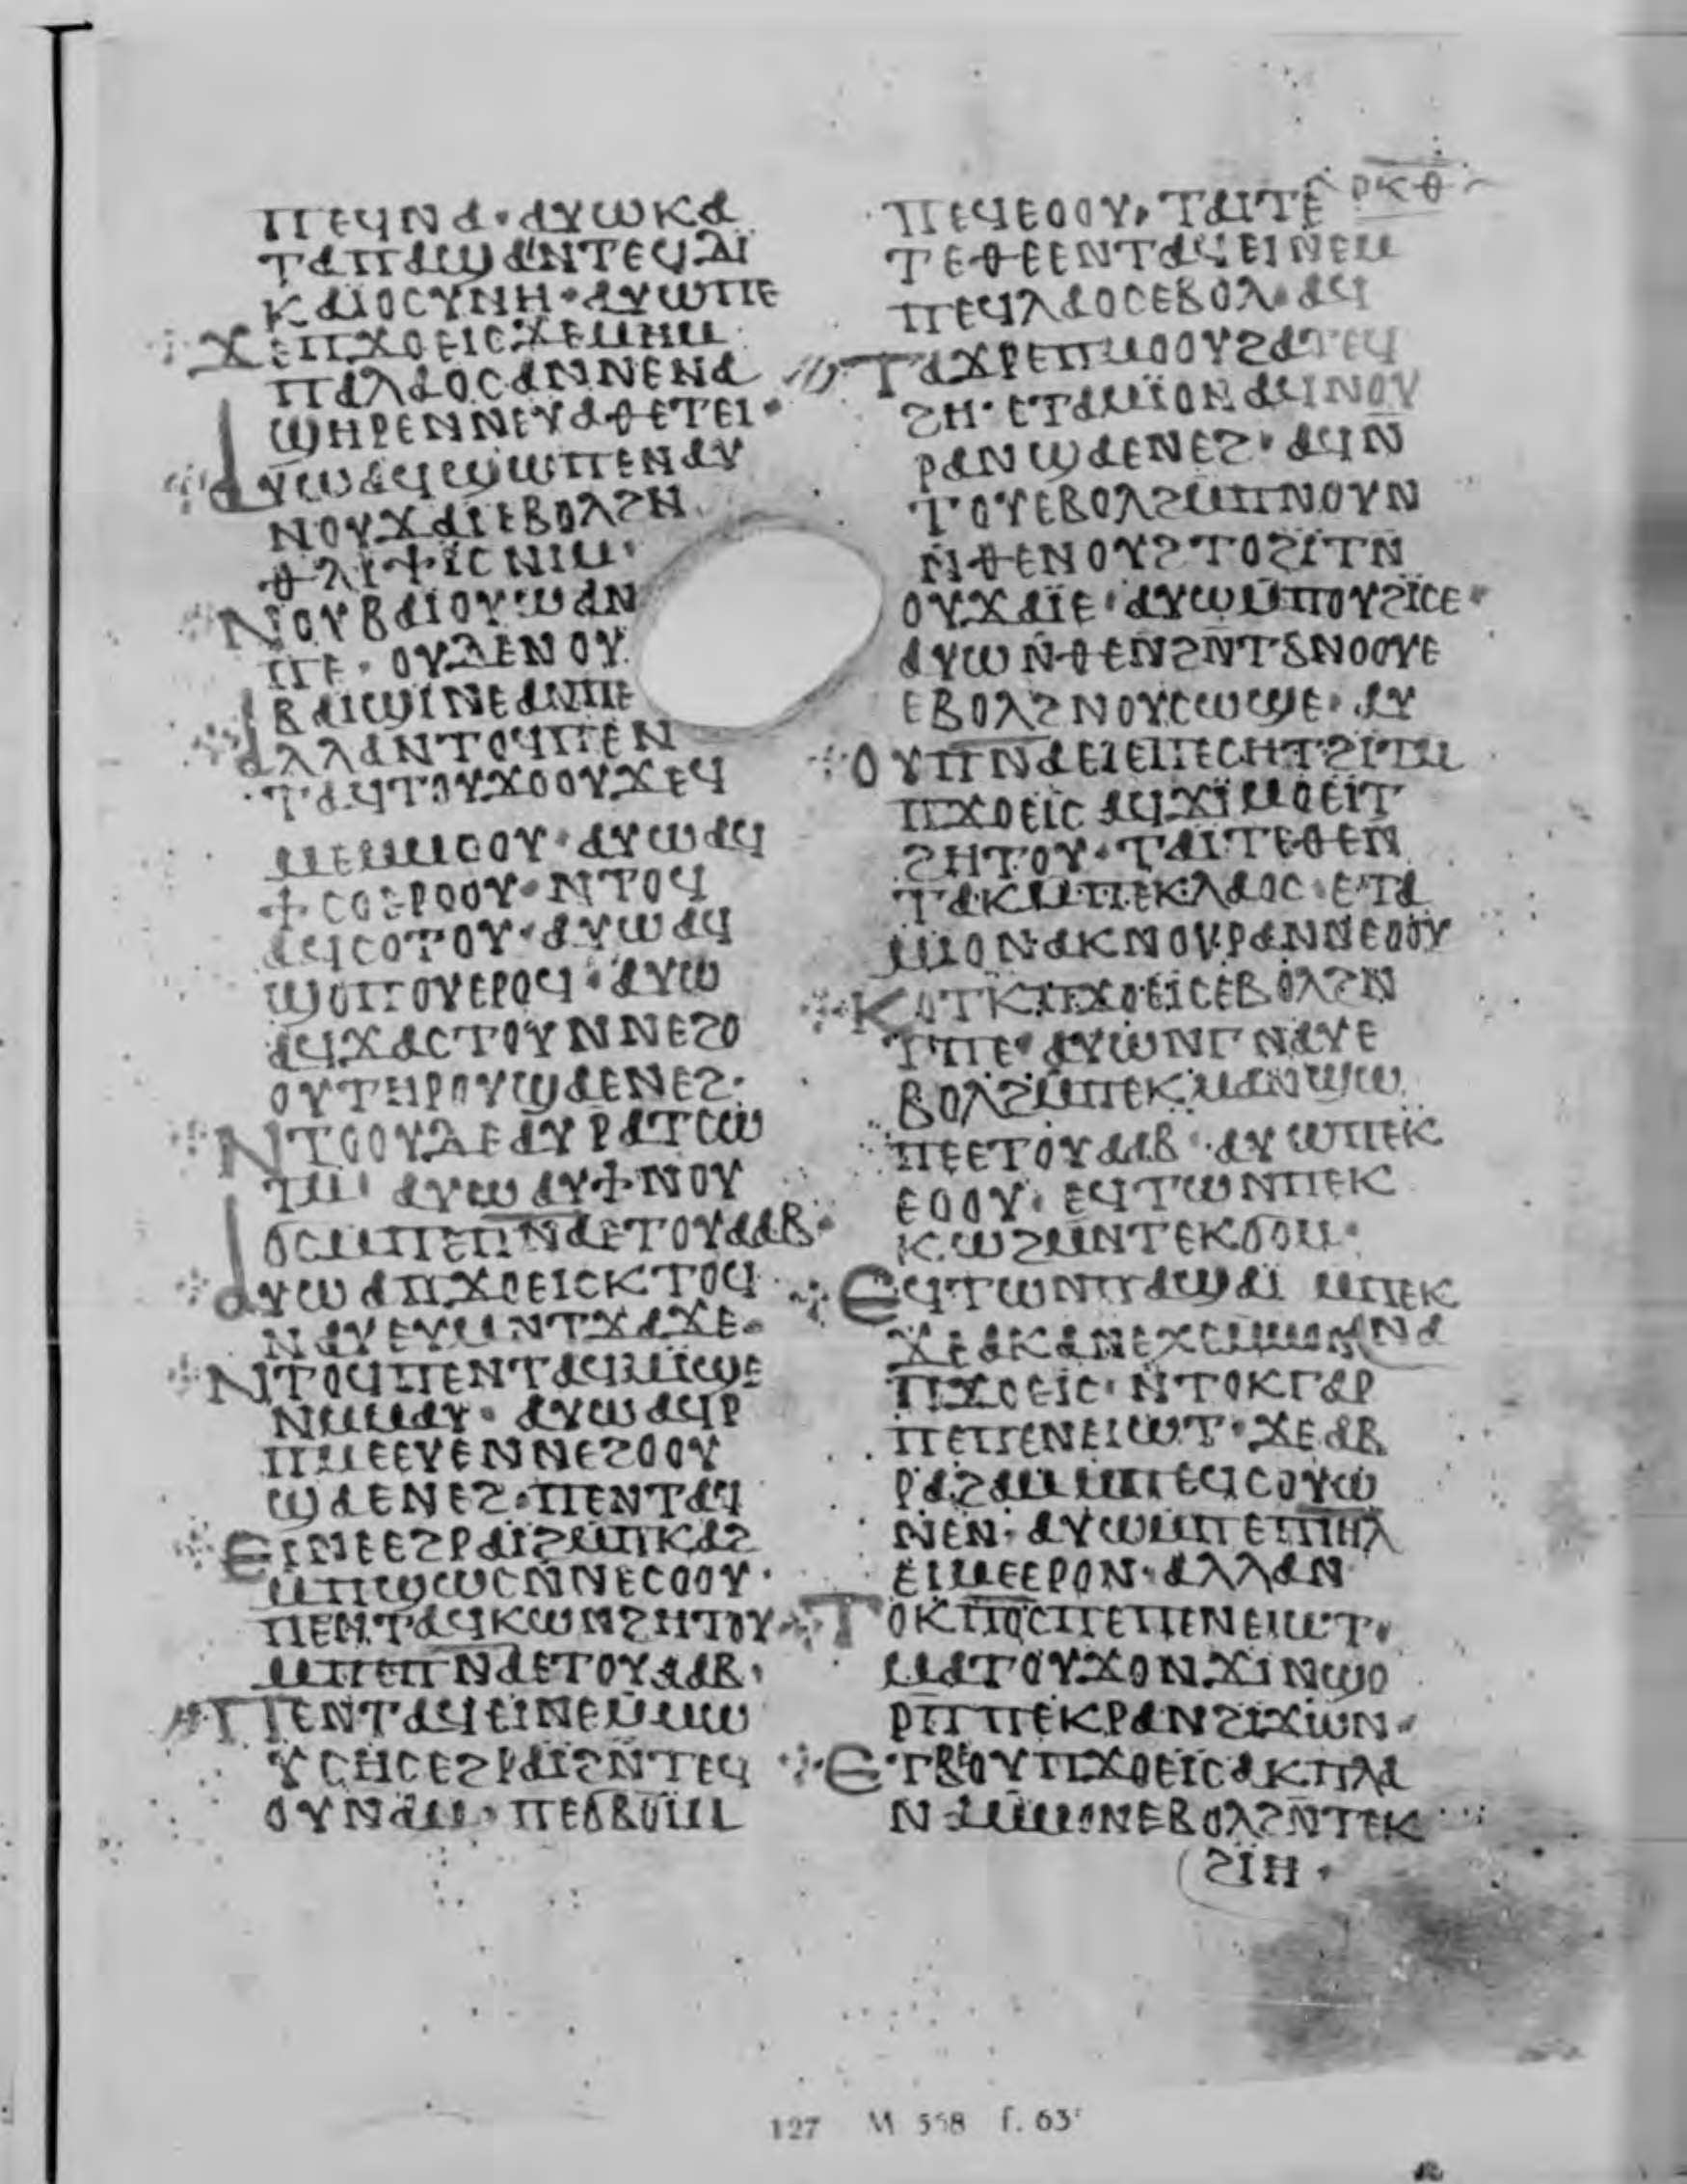 ⲣⲕⲑ
ⲡⲉϥⲛⲁ · ⲁⲩⲱ ⲕⲁ
ⲧⲁ ⲡⲁϣⲁⲓ ⲛⲧⲉϥⲇⲓ
ⲕⲁⲓⲟⲥⲩⲛⲏ · ⲁⲩⲱ ⲡⲉ
ϫⲉ ⲡϫⲟⲉⲓⲥ ϫⲉ ⲙⲏ ⲙ
ⲡⲁⲗⲁⲟⲥ ⲁⲛ ⲛⲉ ⲛⲁ
ϣⲏⲣⲉ ⲛⲛⲉⲩⲁⲑⲉⲧⲉⲓ ·
ⲁⲩⲱ ⲁϥϣⲱⲡⲉ ⲛⲁⲩ
ⲛⲟⲩϫⲁⲓ ⲉⲃⲟⲗ ϩⲛ
ⲑⲗⲓⲯⲓⲥ ⲛⲓⲙ ·
ⲛⲟⲩⲃⲁⲓⲟⲩϣ ⲁⲛ
ⲡⲉ · ⲟⲩⲇⲉ ⲛⲟⲩ
ⲃⲁⲓϣⲓⲛⲉ ⲁⲛ ⲡⲉ
ⲁⲗⲗⲁ ⲛⲧⲟϥ ⲡⲉⲛ
ⲧⲁϥⲧⲟⲩϫⲟⲟⲩ ϫⲉ ϥ
ⲙⲉ ⲙⲙⲟⲟⲩ · ⲁⲩⲱ ⲁϥ
ϯⲥⲟ ⲉⲣⲟⲟⲩ · ⲛⲧⲟϥ
ⲁϥⲥⲟⲧⲟⲩ · ⲁⲩⲱ ⲁϥ
ϣⲟⲡⲟⲩ ⲉⲣⲟϥ · ⲁⲩⲱ
ⲁϥϫⲁⲥⲧⲟⲩ ⲛⲛⲉϩⲟ
ⲟⲩ ⲧⲏⲣⲟⲩ ϣⲁ ⲉⲛⲉϩ ·
ⲛⲧⲟⲟⲩ ⲇⲉ ⲁⲩⲣⲁⲧⲥⲱ
ⲧⲙ ⲁⲩⲱ ⲁⲩϯⲛⲟⲩ
ϭⲥ ⲙⲡⲉⲡⲛⲁ ⲉⲧⲟⲩⲁⲁⲃ ·
ⲁⲩⲱ ⲁ ⲡϫⲟⲉⲓⲥ ⲕⲧⲟϥ
ⲛⲁⲩ ⲉⲩⲙⲛⲧϫⲁϫⲉ ·
ⲛⲧⲟϥ ⲡⲉⲛⲧⲁϥⲙⲓϣⲉ
ⲛⲙⲙⲁⲩ · ⲁⲩⲱ ⲁϥⲣ
ⲡⲙⲉⲉⲩⲉ ⲛⲛⲉϩⲟⲟⲩ
ϣⲁ ⲉⲛⲉϩ · ⲡⲉⲛⲧⲁϥ
ⲉⲓⲛⲉ ⲉϩⲣⲁⲓ ϩⲙ ⲡⲕⲁϩ
ⲙⲡϣⲱⲥ ⲛⲛⲉⲥⲟⲟⲩ ·
ⲡⲉⲛⲧⲁϥⲕⲱ ⲛϩⲏⲧⲟⲩ
ⲙⲡⲉⲡⲛⲁ ⲉⲧⲟⲩⲁⲁⲃ ·
ⲡⲉⲛⲧⲁϥⲉⲓⲛⲉ ⲙⲙⲱ
ⲩⲥⲏⲥ ⲉϩⲣⲁⲓ ϩⲛ ⲧⲉϥ
ⲟⲩⲛⲁⲙ · ⲡⲉϭⲃⲟⲓ ⲙ
ⲡⲉϥⲉⲟⲟⲩ · ⲧⲁⲓ ⲧⲉ
ⲧⲉ ⲑⲉ ⲉⲛⲧⲁϥⲉⲓⲛⲉ ⲙ
ⲡⲉϥⲗⲁⲟⲥ ⲉⲃⲟⲗ · ⲁϥ
ⲧⲁϫⲣⲉ ⲡⲙⲟⲟⲩ ϩⲁ ⲧⲉϥ
ϩⲏ · ⲉⲧⲁⲙⲓⲟ ⲛⲁϥ ⲛⲟⲩ
ⲣⲁⲛ ϣⲁ ⲉⲛⲉϩ · ⲁϥⲛ
ⲧⲟⲩ ⲉⲃⲟⲗ ϩⲙ ⲡⲛⲟⲩⲛ
ⲛⲑⲉ ⲛⲟⲩϩⲧⲟ ϩⲓⲧⲛ
ⲟⲩϫⲁⲓⲉ · ⲁⲩⲱ ⲙⲡⲟⲩϩⲓⲥⲉ ·
ⲁⲩⲱ ⲛⲑⲉ ⲛϩⲛⲧⲃⲛⲟⲟⲩⲉ
ⲉⲃⲟⲗ ϩⲛ ⲟⲩⲥⲱϣⲉ · ⲁⲩ
ⲟⲩⲡⲛⲁ ⲉⲓ ⲉⲡⲉⲥⲏⲧ ϩⲓⲧⲙ
ⲡϫⲟⲉⲓⲥ ⲁϥϫⲓⲙⲟⲉⲓⲧ
ϩⲏⲧⲟⲩ · ⲧⲁⲓ ⲧⲉ ⲑⲉ ⲛ
ⲧⲁⲕ ⲙⲡⲉⲕⲗⲁⲟⲥ · ⲉⲧⲁ
ⲙⲓⲟ ⲛⲁⲕ ⲛⲟⲩⲣⲁⲛ ⲛⲉⲟⲟⲩ
ⲕⲟⲧⲕ ⲡϫⲟⲉⲓⲥ ⲉⲃⲟⲗ ϩⲛ
ⲧⲡⲉ · ⲁⲩⲱ ⲛⲅ ⲛⲁⲩ ⲉ
ⲃⲟⲗ ϩⲙ ⲡⲉⲕⲙⲁ ⲛϣⲱ
ⲡⲉ ⲉⲧⲟⲩⲁⲁⲃ · ⲁⲩⲱ ⲡⲉⲕ
ⲉⲟⲟⲩ · ⲉϥⲧⲱⲛ ⲡⲉⲕ
ⲕⲱϩ ⲙⲛ ⲧⲉⲕϭⲟⲙ ·
ⲉϥⲧⲱⲛ ⲡⲁϣⲁⲓ ⲙⲡⲉⲕ
ⲛⲁ
ϫⲉ ⲁⲕⲁⲛⲉⲭⲉ ⲙⲙⲟⲛ
ⲡϫⲟⲉⲓⲥ · ⲛⲧⲟⲕ ⲅⲁⲣ
ⲡⲉ ⲡⲉⲛⲉⲓⲱⲧ · ϫⲉ ⲁⲃ
ⲣⲁϩⲁⲙ ⲙⲡⲉϥⲥⲟⲩⲱ
ⲛⲉⲛ · ⲁⲩⲱ ⲙⲡⲉ ⲡⲓⲏⲗ
ⲉⲓⲙⲉ ⲉⲣⲟⲛ · ⲁⲗⲗⲁ ⲛ
ⲧⲟⲕ ⲡϭⲥ ⲡⲉ ⲡⲉⲛⲉⲓⲱⲧ ·
ⲙⲁⲧⲟⲩϫⲟⲛ ϫⲓⲛ ϣⲟ
ⲣⲡ ⲡⲉⲕⲣⲁⲛ ϩⲓϫⲱⲛ ·
ⲉⲧⲃⲉ ⲟⲩ ⲡϫⲟⲉⲓⲥ ⲁⲕⲡⲗⲁ
ⲛⲁ ⲙⲙⲟⲛ ⲉⲃⲟⲗ ϩⲛ ⲧⲉⲕ
ϩⲓⲏ ·
127 M 558 f. 63ʳ